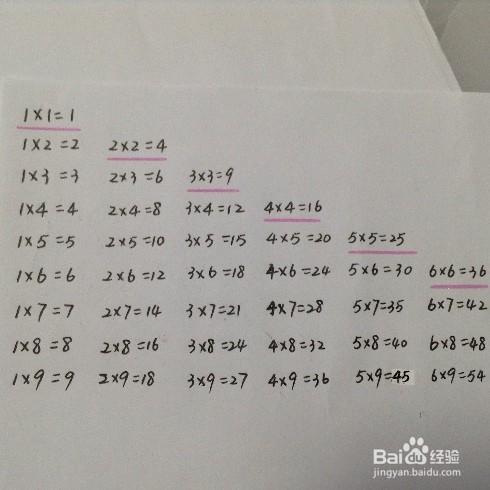 1×1=1
1×2=2 2×2=4
1×3=3 2×3=6 3×3=9
1×4=4 2×4=8 3×4=12 4×4=16
1×5=5 2×5=10 3×5=15 4×5=20 5×5=25
1×6=6 2×6=12 3×6=18 4×6=24 5×6=30 6×6=36
1×7=7 2×7=14 3×7=21 4×7=28 5×7=35 6×7=42
1×8=8 2×8=16 3×8=24 4×8=32 5×8=40 6×8=48
1×9=9 2×9=18 3×9=27 4×9=36 5×9=45 6×9=54
Baidu经验
jingyan.baidu.com